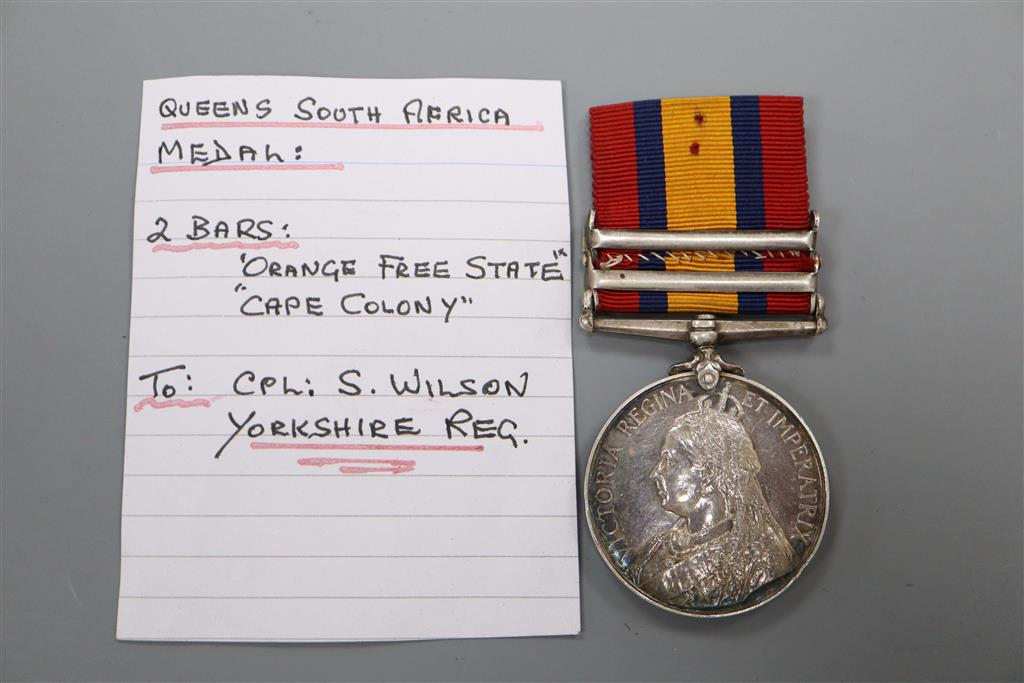 QUEENS SOUTH AFRICA
MEDAL:
2 BARS:
"ORANGE FREE STATE"
"CAPE COLONY"
TO: CPL: S. WILSON
YORKSHIRE REG.
VICTORIA REGINA ET IMPERATRIX